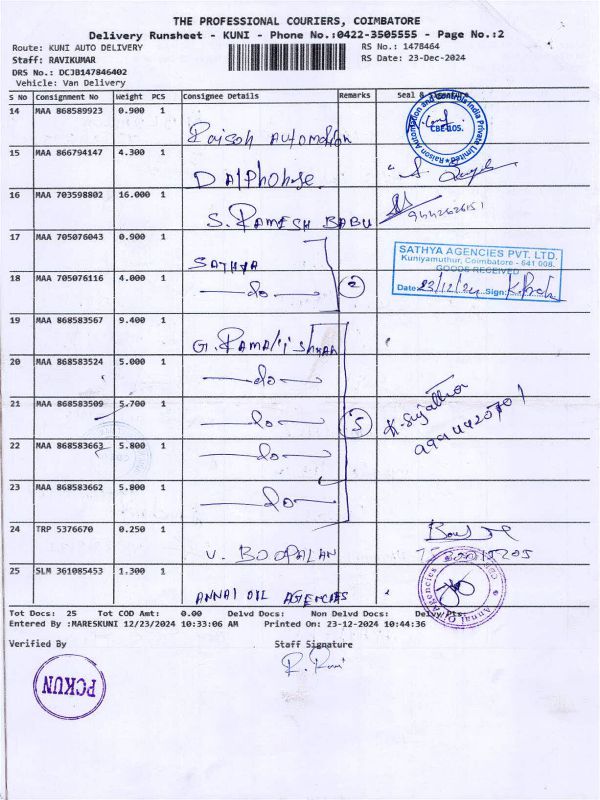 THE PROFESSIONAL COURIERS, COIMBATORE
Delivery Runsheet - KUNI - Phone No.:0422-3505555 - Page No.:2
Route: KUNI AUTO DELIVERY
RS No.: 1478464
Staff: RAVIKUMAR
RS Date: 23-Dec-2024
DRS No.: DCJB147846402
Vehicle: Van Delivery
S No Consignment No Weight PCS Consignee Details Remarks Seal &
14 MAA 868589923 0.900 1 Raison Automation
Raison Automation and Controls India Private Limited
CBE-1105.
15 MAA 866794147 4.300 1 Dalphohse
16 MAA 703598802 16.000 1 S. RAMESH BABU
17 MAA 705076043 0.900 1 SATHYA
SATHYA AGENCIES PVT. LTD.
Kuniyamuthur, Coimbatore - 641 008.
GOODS RECEIVED
Date 23/12/24 Sign:
18 MAA 705076116 4.000 1 —do— 2
19 MAA 868583567 9.400 1
20 MAA 868583524 5.000 1 —do—
21 MAA 868583509 5.700 1 —do— 5
K-Sujatha
22 MAA 868583663 5.800 1 —do—
23 MAA 868583662 5.800 1 —do—
24 TRP 5376670 0.250 1 V. BOOPALAN
25 SLM 361085453 1.300 1 ANNAI OIL AGENCIES
Tot Docs: 25 Tot COD Amt: 0.00 Delvd Docs: Non Delvd Docs: Delvy/Pts:
Entered By :MARESKUNI 12/23/2024 10:33:06 AM Printed On: 23-12-2024 10:44:36
Verified By Staff Signature
R. Ravi
PCKUN